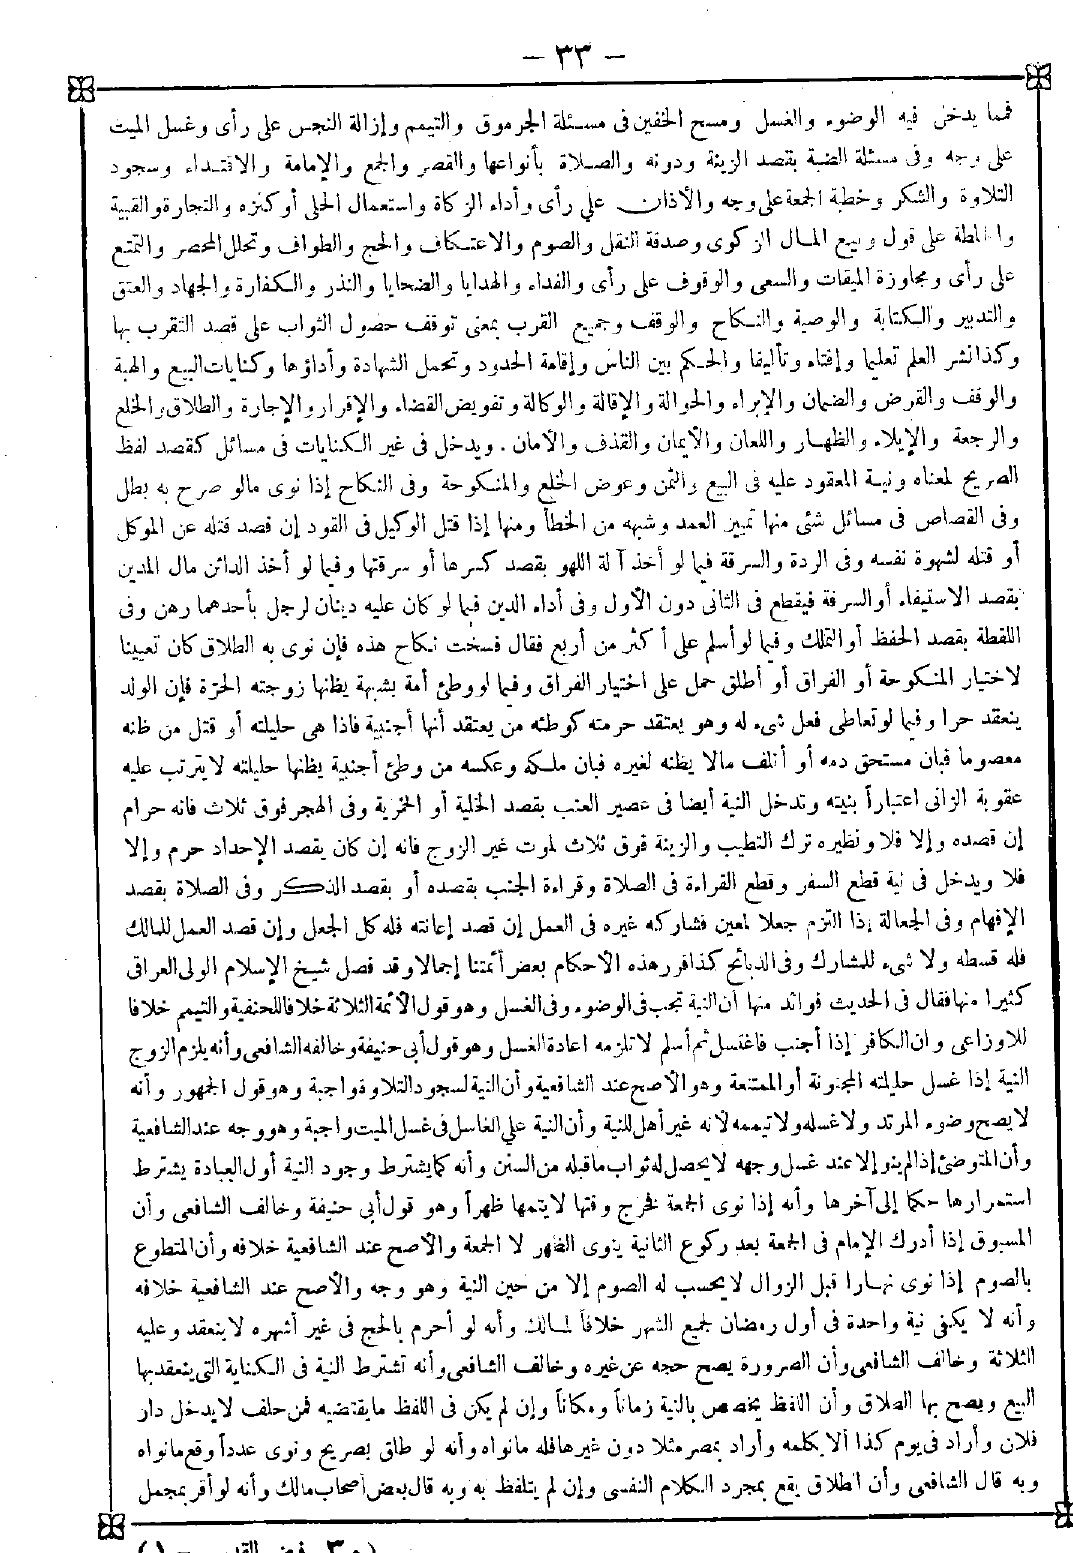 – ٣٣ –
فمما يدخل فيه الوضوء والغسل ومسح الخفين فى مسئلة الجرموق والتيمم وإزالة النجس على رأى وغسل الميت
على وجه وفى مسئلة الضبة بقصد الزينة ودونه والصلاة بأنواعها والقصر والجمع والإمامة والاقتداء وسجود
التلاوة والشكر وخطبة الجمعة على وجه والأذان على رأى وأداء الزكاة واستعمال الحلى أو كنزه والتجارة والقنية
والخلطة على قول وبيع المال الزكوى وصدقة النفل والصوم والاعتكاف والحج والطواف وتحلل المحصر والتمتع
على رأى ومجاوزة الميقات والسعى والوقوف على رأى والفداء والهدايا والضحايا والنذر والكفارة والجهاد والعتق
والتدبير والكتابة والوصية والنكاح والوقف وجميع القرب بمعنى توقف حصول الثواب على قصد التقرب بها
وكذا نشر العلم تعليما وإفتاء وتأليفا والحكم بين الناس وإقامة الحدود وتحمل الشهادة وأداؤها وكنايات البيع والهبة
والوقف والقرض والضمان والإبراء والحوالة والإقالة والوكالة وتفويض القضاء والإقرار والإجارة والطلاق والخلع
والرجعة والإيلاء والظهار واللعان والأيمان والقذف والأمان . ويدخل فى غير الكنايات فى مسائل كقصد لفظ
الصريح لمعناه ونية المعقود عليه فى البيع والثمن وعوض الخلع والمنكوحة وفى النكاح إذا نوى مالو صرح به بطل
وفى القصاص فى مسائل شتى منها تمييز العمد وشبهه من الخطأ ومنها إذا قتل الوكيل فى القود إن قصد قتله عن الموكل
أو قتله لشهوة نفسه وفى الردة والسرقة فيما لو أخذ آلة اللهو بقصد كسرها أو سرقتها وفيما لو أخذ الدائن مال المدين
بقصد الاستيفاء أو السرقة فيقطع فى الثانى دون الأول وفى أداء الدين فيما لو كان عليه دينان لرجل بأحدهما رهن وفى
اللقطة بقصد الحفظ أو التملك وفيما لو أسلم على أكثر من أربع فقال فسخت نكاح هذه فإن نوى به الطلاق كان تعيينا
لاختيار المنكوحة أو الفراق أو أطلق حمل على اختيار الفراق وفيما لو وطئ أمة بشبهة يظنها زوجته الحرة فإن الولد
ينعقد حرا وفيما لو تعاطى فعل شىء له وهو يعتقد حرمته كوطئه من يعتقد أنها أجنبية فاذا هى حليلته أو قتل من ظنه
معصوما فبان مستحق دمه أو أتلف مالا يظنه لغيره فبان ملكه وعكسه من وطئ أجنبية يظنها حليلته لا يترتب عليه
عقوبة الزانى اعتباراً بنيته وتدخل النية أيضا فى عصير العنب بقصد الخلية أو الخمرية وفى الهجر فوق ثلاث فانه حرام
إن قصده وإلا فلا ونظيره ترك التطيب والزينة فوق ثلاث لموت غير الزوج فانه إن كان بقصد الإحداد حرم وإلا
فلا ويدخل فى نية قطع السفر وقطع القراءة فى الصلاة وقراءة الجنب بقصده أو بقصد الذكر وفى الصلاة بقصد
الإفهام وفى الجعالة إذا التزم جعلا لمعين فشاركه غيره فى العمل إن قصد إعانته فله كل الجعل وإن قصد العمل للمالك
فله قسطه ولا شىء للمشارك وفى الذبائح كذا قرر هذه الأحكام بعض أئمتنا إجمالا وقد فصل شيخ الإسلام الولى العراقى
كثيرا منها فقال فى الحديث فوائد منها أن النية تجب فى الوضوء وفى الغسل وهو قول الأئمة الثلاثة خلافا للحنفية والتيمم خلافا
للاوزاعى وان الكافر إذا أجنب فاغتسل ثم أسلم لا تلزمه اعادة الغسل وهو قول أبى حنيفة وخالفه الشافعى وأنه يلزم الزوج
النية إذا غسل حليلته المجنونة أو الممتنعة وهو الأصح عند الشافعية وأن النية لسجود التلاوة واجبة وهو قول الجمهور وأنه
لا يصح وضوء المرتد ولا غسله ولا تيممه لأنه غير أهل للنية وأن النية على الغاسل فى غسل الميت واجبة وهو وجه عند الشافعية
وأن المتوضئ إذا لم ينو إلا عند غسل وجهه لا يحصل له ثواب ما قبله من السنن وأنه كما يشترط وجود النية أول العبادة يشترط
استمرارها حكما إلى آخرها وأنه إذا نوى الجمعة فخرج وقتها لا يتمها ظهراً وهو قول أبى حنيفة وخالف الشافعى وأن
المسبوق إذا أدرك الإمام فى الجمعة بعد ركوع الثانية ينوى الظهر لا الجمعة والأصح عند الشافعية خلافه وأن المتطوع
بالصوم إذا نوى نهارا قبل الزوال لا يحسب له الصوم إلا من حين النية وهو وجه والأصح عند الشافعية خلافه
وأنه لا يكفى نية واحدة فى أول رمضان لجميع الشهر خلافاً لمالك وأنه لو أحرم بالحج فى غير أشهره لا ينعقد وعليه
الثلاثة وخالف الشافعى وأن الصرورة يصح حجه عن غيره وخالف الشافعى وأنه تشترط النية فى الكناية التى ينعقد بها
البيع ويصح بها الطلاق وأن اللفظ يخصص بالنية زماناً ومكاناً وإن لم يكن فى اللفظ ما يقتضيه فمن حلف لا يدخل دار
فلان وأراد فى يوم كذا ألا يكلمه وأراد بمصر مثلا دون غيرها فله مانواه وأنه لو طلق بصريح ونوى عدداً وقع مانواه
وبه قال الشافعى وأن الطلاق يقع بمجرد الكلام النفسى وإن لم يتلفظ به وبه قال بعض أصحاب مالك وأنه لو أقر بمجمل